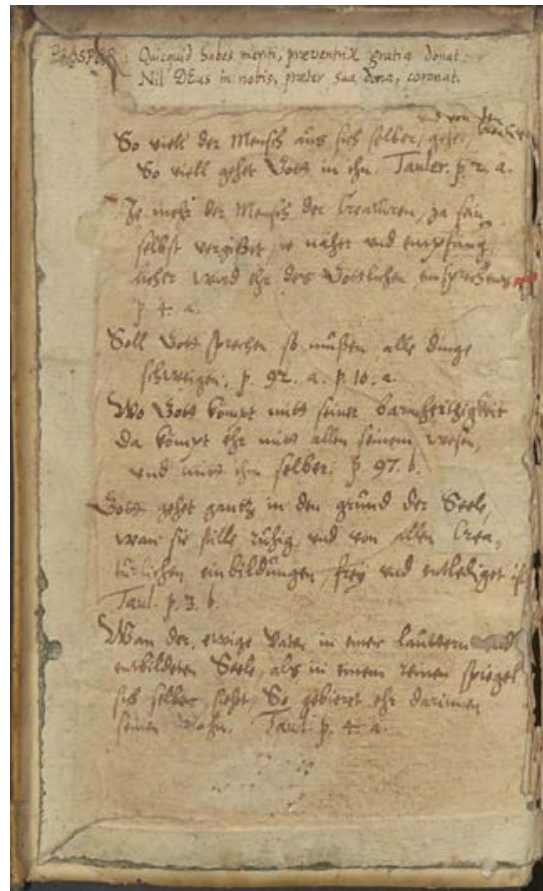 PROSPER: Quicquid habes meriti, præventrix gratia donat.
Nil DEus in nobis, præter sua dona, coronat.
und von den
Creaturen
So viell der Mensch aus sich selber, gehet,
So viell gehet Gott in ihn. Tauler. p. 2. a.
Je mehr der Mensch der Creaturen, ja sein
selbst vergißet, je näher und empfäng
licher wird ehr des Göttlichen einsprechens
p. 4. a.
Soll Gott sprechen, so müßen alle dinge
schweigen. p. 92. a. p. 10. a.
Wo Gott kömpt mitt seiner barmhertzigkeit
da kömpt ehr mitt allen seinem wesen,
und mitt ihm selber. p. 97. b.
Gott gehet gantz in den grund der Seele,
wan sie stille, ruhig, und von allen Crea,
türlichen einbildungen frey und entlediget ist
Taul. p. 3. b.
Wan der, ewige Vater in einer lauttern und
entbildeten Seele, als in einem reinen spiegel
sich selber siehet, So gebieret ehr darinnen
seinen Sohn. Taul. p. 4. a.